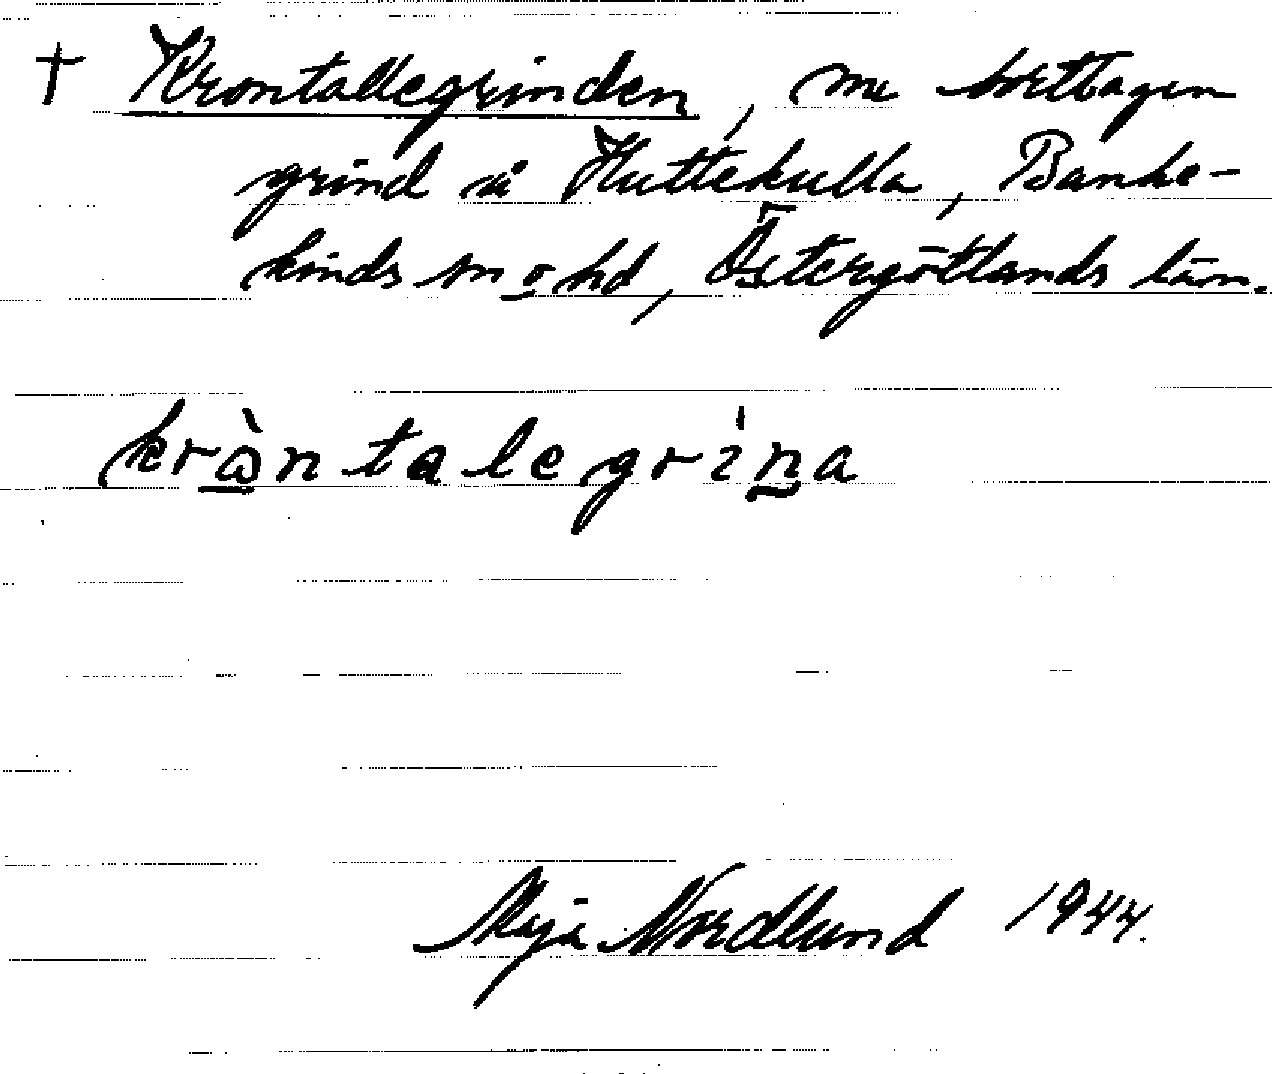 † Krontallegrinden, nu borttagen
grind i Huttekulla, Banke-
kinds sn o hd, Östergötlands län.
kròntalegrína
Maja Nordlund 1944.